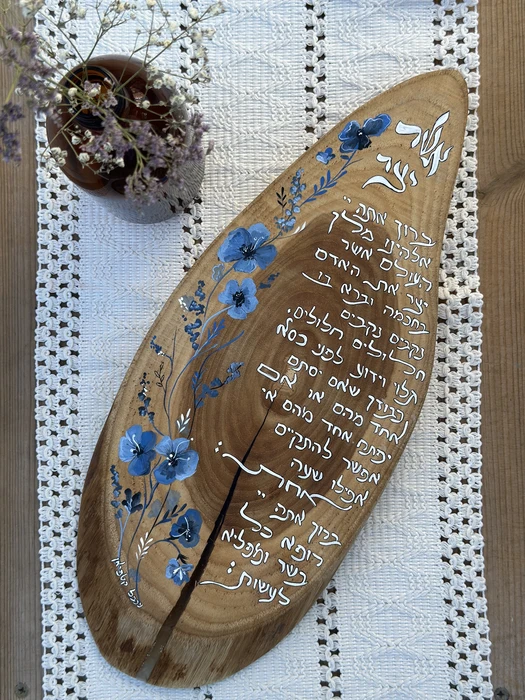 אשר
יצר
ברוך אתה ״
אלהינו מלך
העולם אשר
יצר את האדם
בחכמה וברא בו
נקבים נקבים
חלולים חלולים.
גלוי וידוע לפני כסא
כבודך שאם יסתם
אחד מהם או אם
יפתח אחד מהם אי
אפשר להתקיים
אפילו שעה
אחת:
ברוך אתה ״
רופא כל
בשר ומפליא
לעשות: